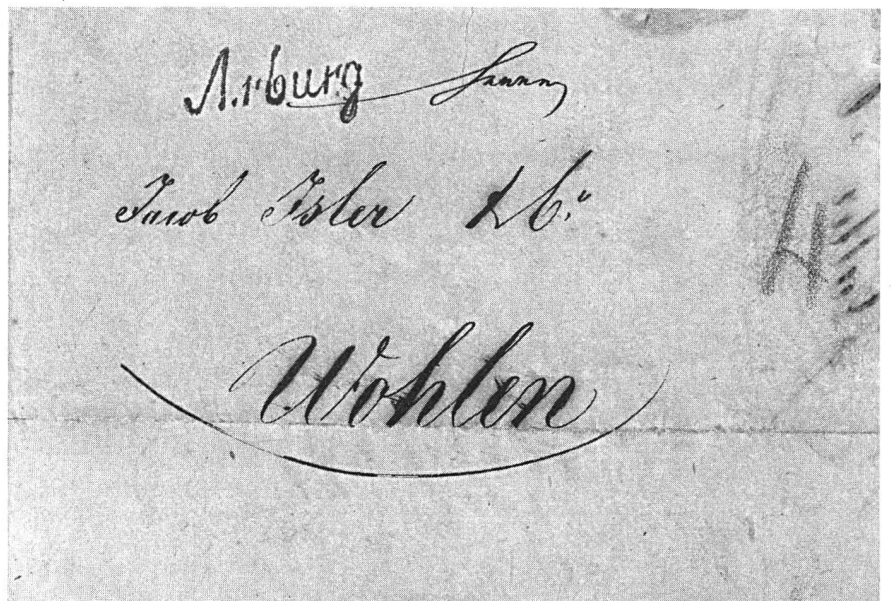 Arburg Herren
Jacob Isler & Co.
4
Wohlen